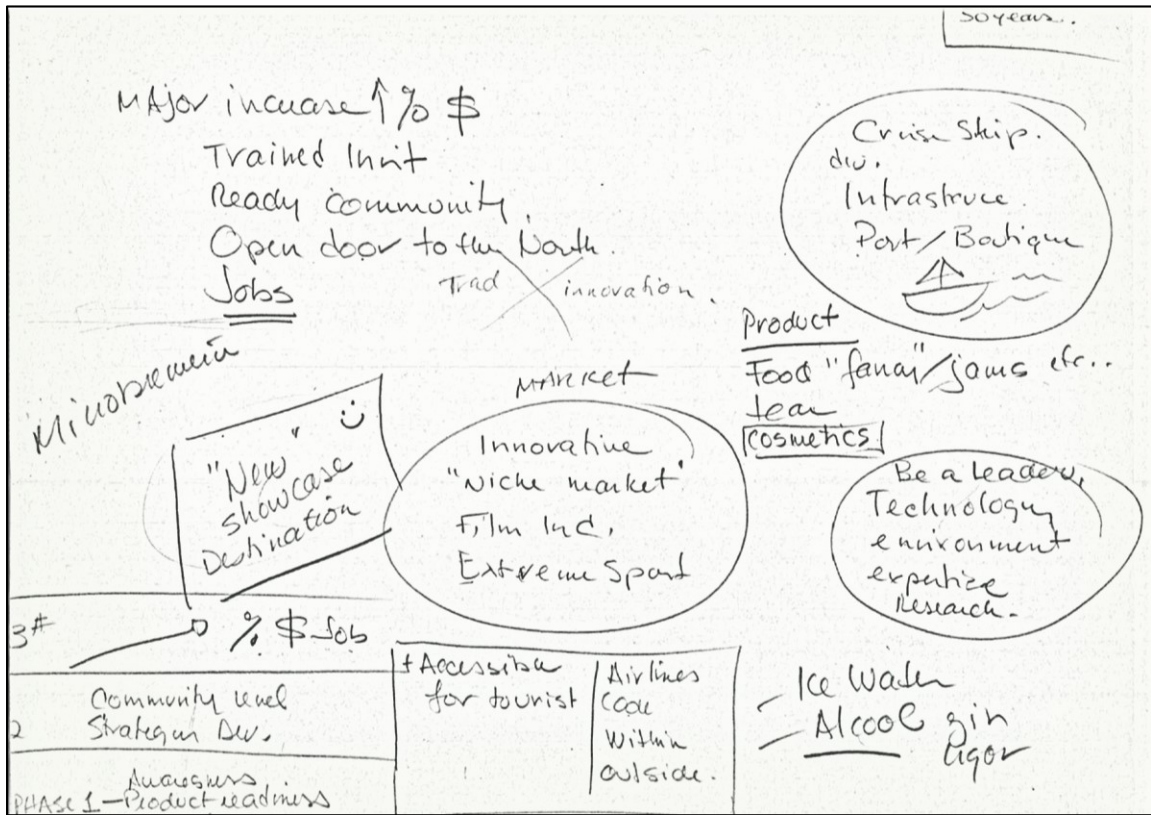 50 years..
Major increase ↑ % $
Trained Inuit
Ready community
Open door to the North
Jobs
Trad innovation.
Cruise Ship.
div.
Infrastruce
Port / Boutique
Product
Food "fanai" / jams etc..
tea
cosmetics
"New
showcase
Destination
MARKET
Innovative
"Niche market"
Film Ind.
Extreme Sport
Be a leader,
Technology
environment
expertise
Research.
3#
% $ Job
2
Community level
Strategic Dev.
Awareness
PHASE 1 – Product readiness
+ Accessible
for tourist
Airlines
Code
Within
outside.
- Ice Water
- Alcool gin